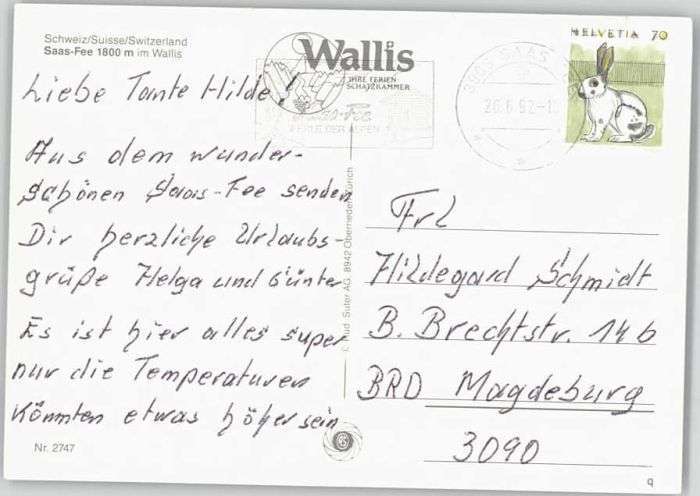 Schweiz/Suisse/Switzerland
Saas-Fee 1800 m im Wallis
Wallis
IHRE FERIEN
SCHATZKAMMER
Saas-Fee
PERLE DER ALPEN
3906 SAAS
26.6.92-1
HELVETIA 70
Liebe Tante Hilde!
Aus dem wunder-
schönen Saas-Fee senden
Dir herzliche Urlaubs-
grüße Helga und Günter
Es ist hier alles super
nur die Temperaturen
könnten etwas höher sein
Frl
Hildegard Schmidt
B. Brechtstr. 14b
BRD Magdeburg
3090
© Rud. Suter AG, 8942 Oberrieden-Zürich
Nr. 2747
q